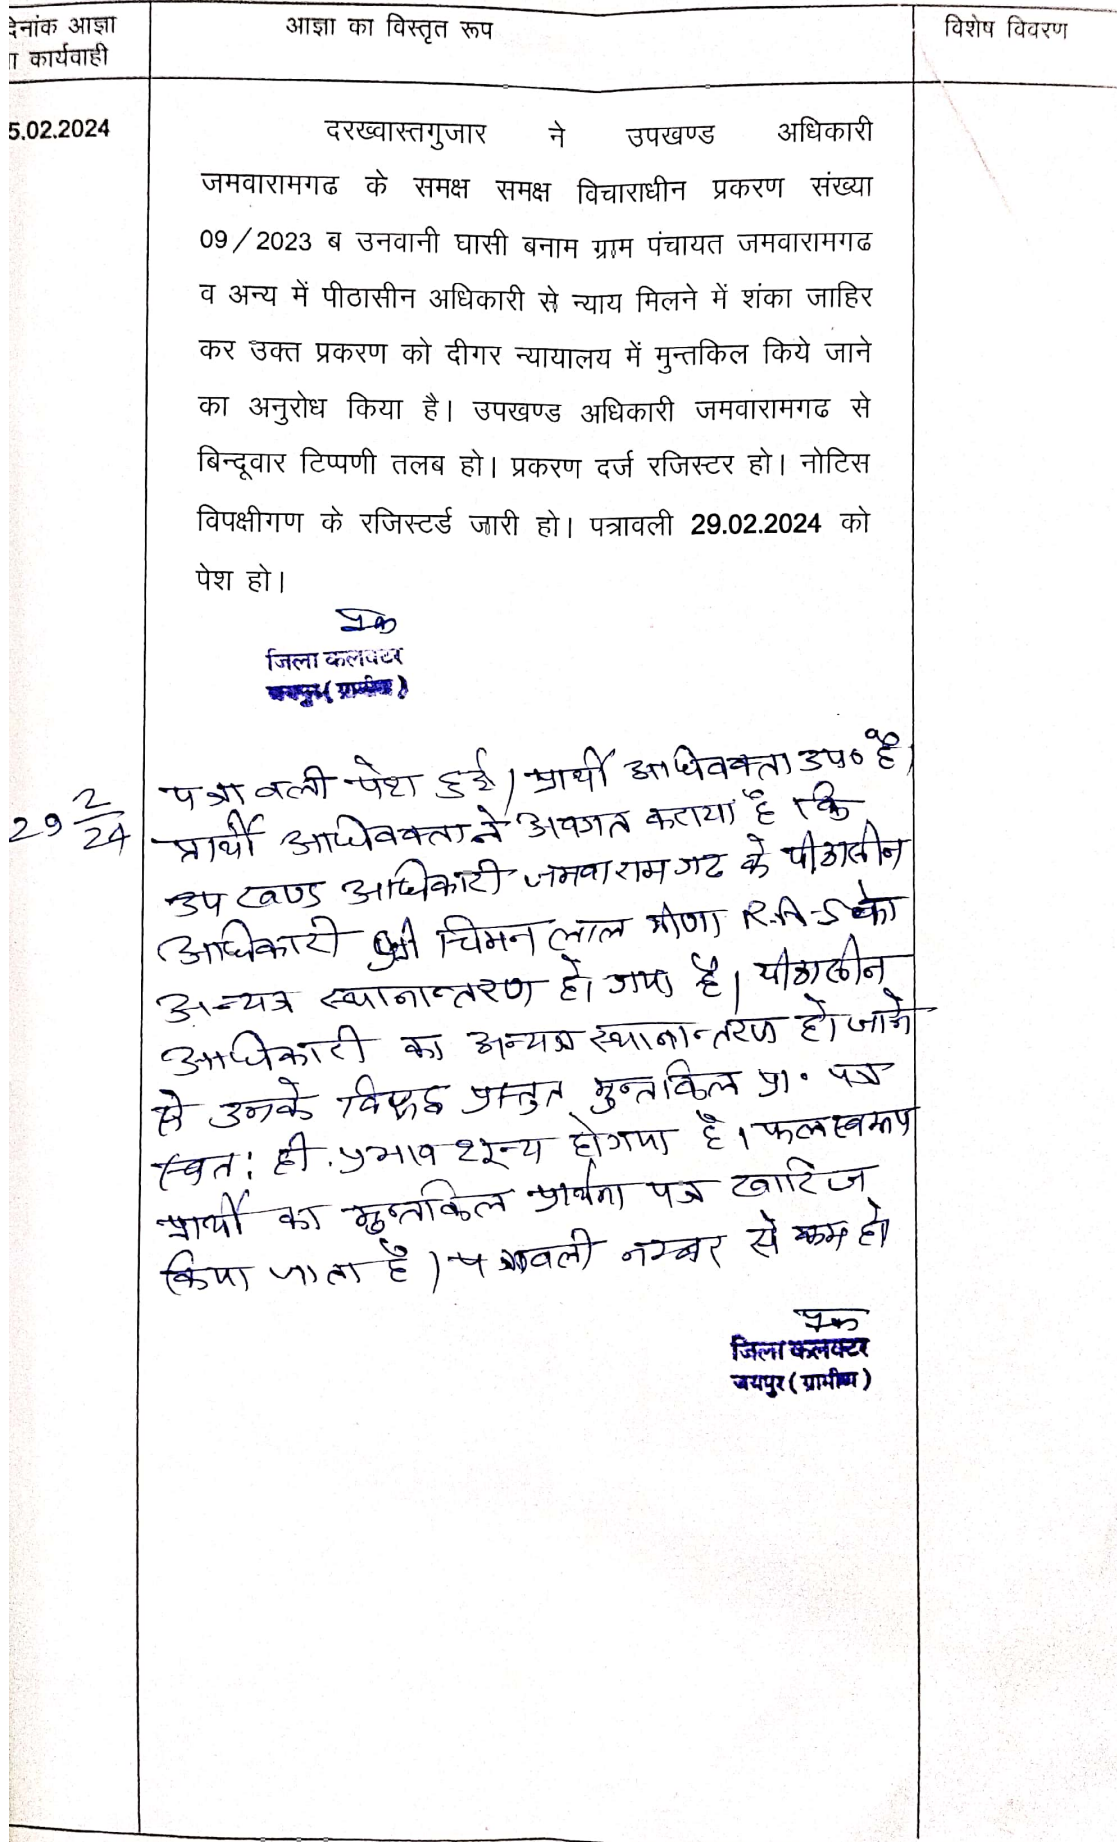 देनांक आज्ञा
ा कार्यवाही
आज्ञा का विस्तृत रूप
विशेष विवरण
5.02.2024
दरख्वास्तगुजार ने उपखण्ड अधिकारी
जमवारामगढ के समक्ष समक्ष विचाराधीन प्रकरण संख्या
09/2023 ब उनवानी घासी बनाम ग्राम पंचायत जमवारामगढ
व अन्य में पीठासीन अधिकारी से न्याय मिलने में शंका जाहिर
कर उक्त प्रकरण को दीगर न्यायालय में मुन्तकिल किये जाने
का अनुरोध किया है। उपखण्ड अधिकारी जमवारामगढ से
बिन्दूवार टिप्पणी तलब हो। प्रकरण दर्ज रजिस्टर हो। नोटिस
विपक्षीगण के रजिस्टर्ड जारी हो। पत्रावली 29.02.2024 को
पेश हो।
जिला कलक्टर
जयपुर (ग्रामीण)
29 2/24
पत्रावली पेश हुई। प्रार्थी अधिवक्ता उप० है।
प्रार्थी अधिवक्ता ने अवगत कराया है कि
उपखण्ड अधिकारी जमवारामगढ के पीठासीन
अधिकारी श्री चिमन लाल मीणा R.A.S का
अन्यत्र स्थानान्तरण हो गया है। पीठासीन
अधिकारी का अन्यत्र स्थानान्तरण हो जाने
से उनके विरूद्ध प्रस्तुत मुन्तकिल प्रा. पत्र
स्वत: ही प्रभाव शून्य हो गया है। फलस्वरूप
प्रार्थी का मुन्तकिल प्रार्थना पत्र खारिज
किया जाता है। पत्रावली नम्बर से कम हो
जिला कलक्टर
जयपुर (ग्रामीण)